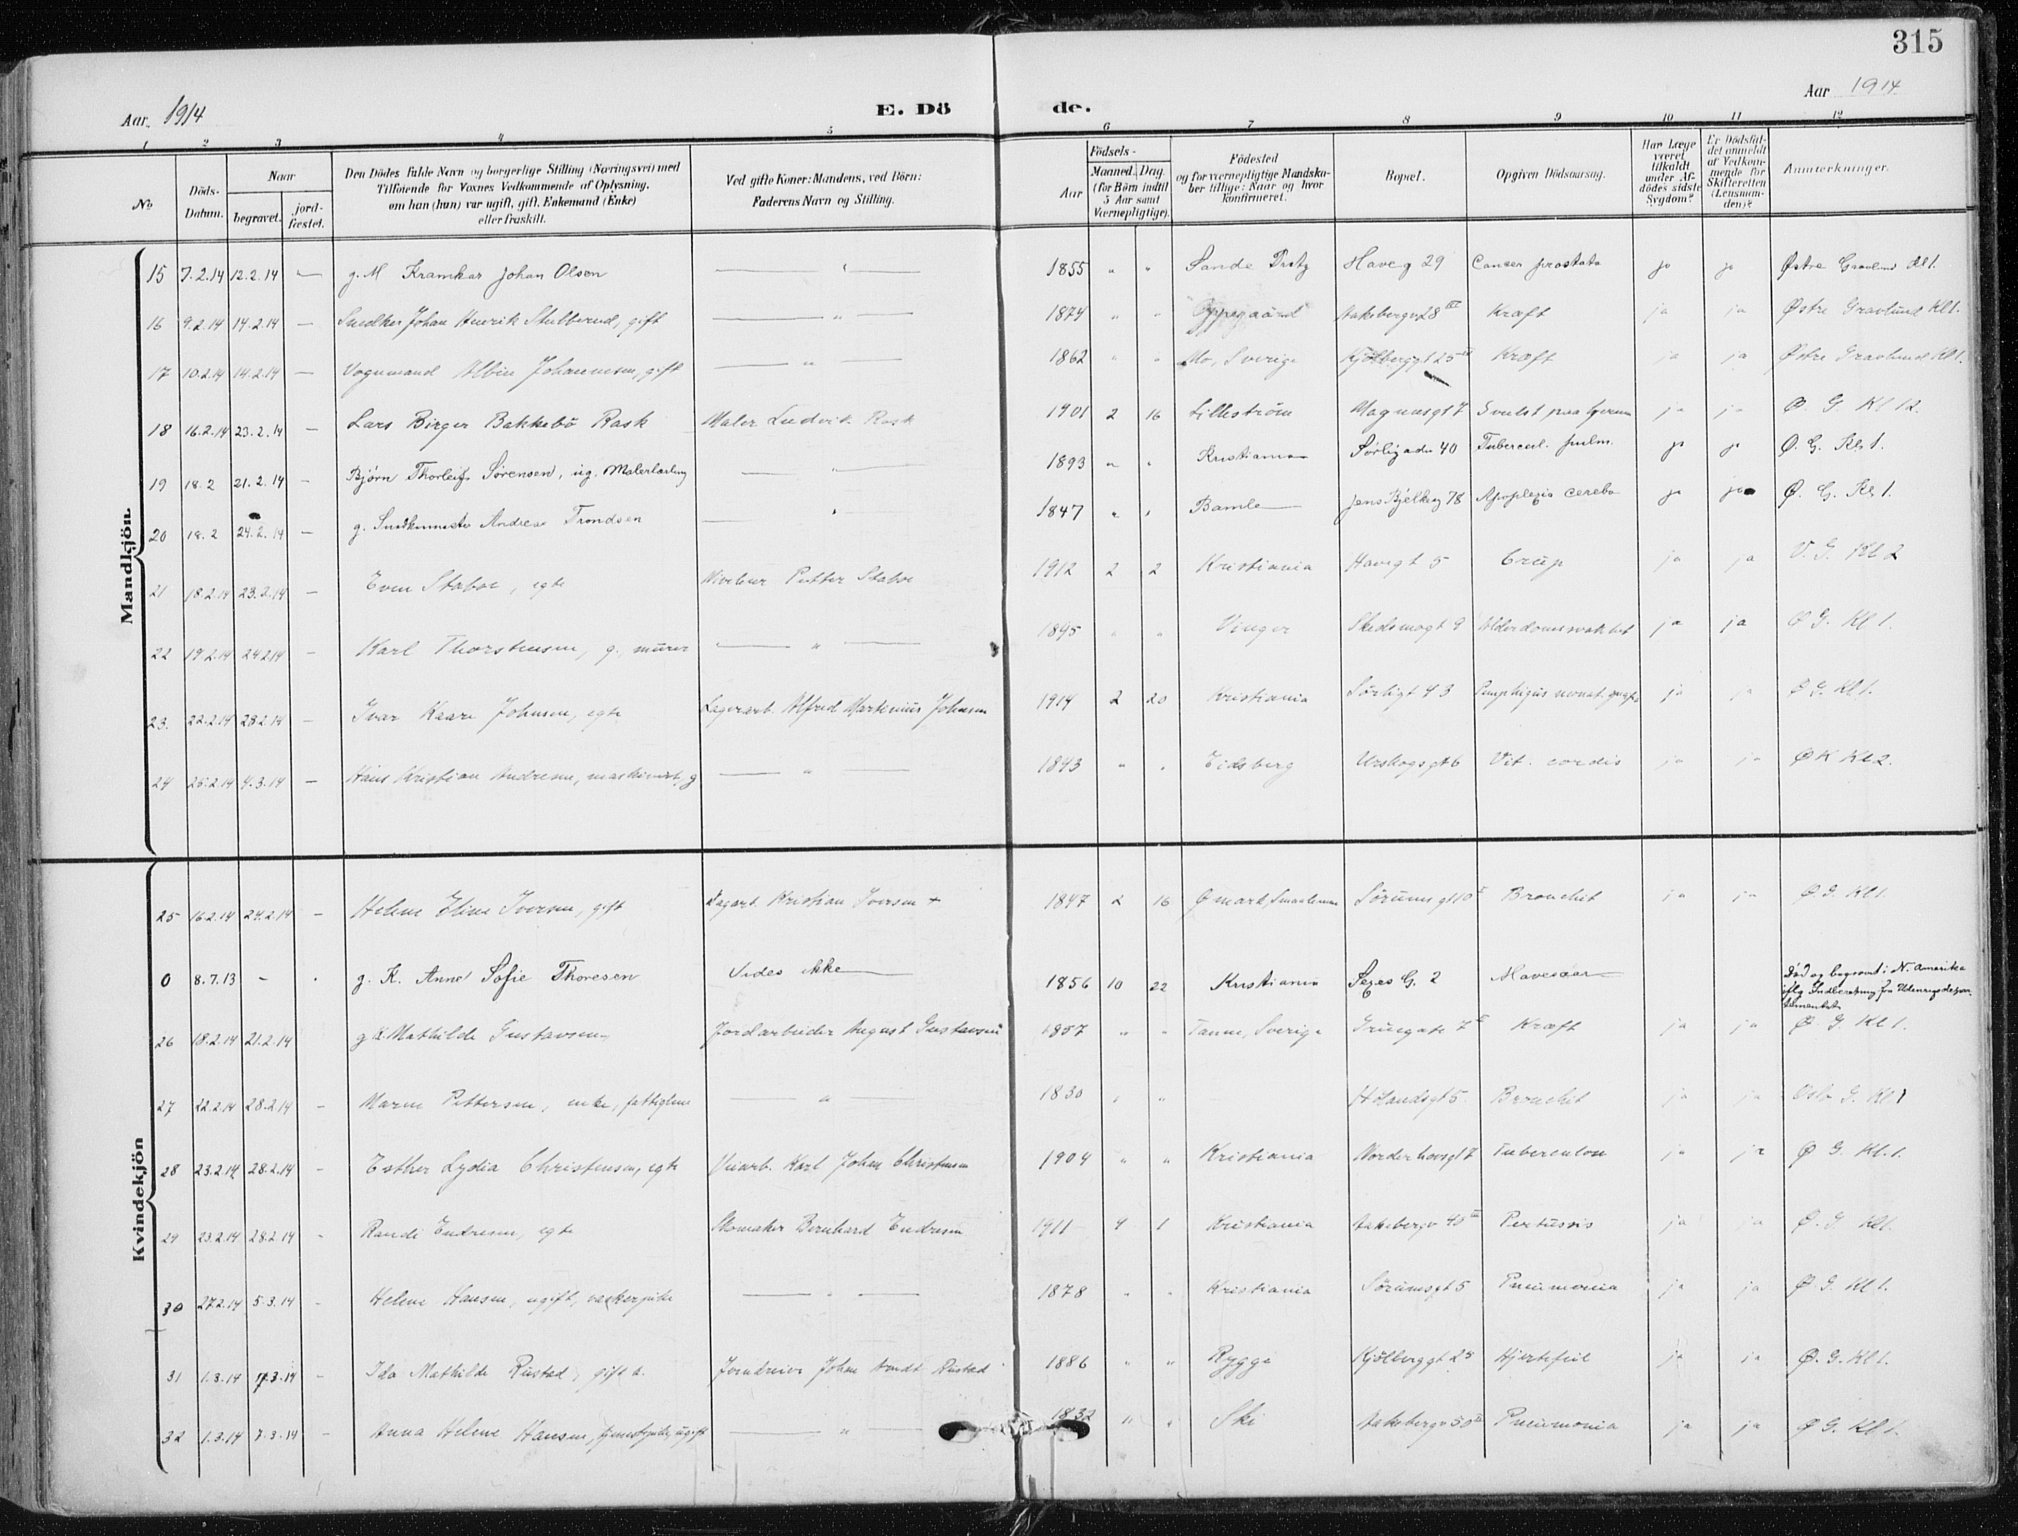 315
Aar 1914 E. Dö de. Aar 1914
1 2 3 4 5 6 7 8 9 10 11 12
No
Döds-Datum.
Naar
begravet.
jord-fæstet.
Den Dödes fulde Navn og borgerlige Stilling (Næringsvei) med
Tilföiende for Voxnes Vedkommende af Oplysning,
om han (hun) var ugift, gift, Enkemand (Enke)
eller fraskilt.
Ved gifte Koner: Mandens, ved Börn:
Faderens Navn og Stilling.
Födsels-
Aar
Maaned. Dag.
(for Börn indtil
5 Aar samt
Værnepligtige).
Födested
og for værnepligtige Mandska-
ber tillige: Naar og hvor
konfirmeret.
Bopæl.
Opgiven Dödsaarsag.
Har Læge
været
tilkaldt
under Af-
dödes sidste
Sygdom?
Er Dödsfal-
det anmeldt
af Vedkom-
mende for
Skifteretten
(Lensman-
den)?
Anmerkninger.
Mandkjön.
15 7.2.14 12.2.14 — g. M Johan Olsen — " — 1855 " " Sande Haveg 29 Cancer prostata ja ja Østre Gravlund Kl 1.
16 9.2.14 14.2.14 — Snedker Johan Henrik Stubberud, gift — " — 1874 " " Oppegaard Aakebergv 28 III Kræft ja ja Østre Gravlund Kl 1.
17 10.2.14 14.2.14 — Vognmand Albin Johannesen, gift — " — 1862 " " Mo, Sverige Kjölberggt 25 Kræft ja ja Østre Gravlund Kl 1.
18 16.2.14 23.2.14 — Lars Birger Bakkebö Rask Maler Ludvik Rask 1901 2 16 Lilleström Magnusgt 7 Svulst paa hjernen ja ja Ø G Kl 2.
19 18.2 21.2.14 — Bjørn Thorleif Sørensen, ug. Malerlærling — " — 1893 " " Kristiania Sørligadn 40 Tubercul. pulm. ja ja Ø. G. Kl 1.
20 18.2 24.2.14 — g. Andreas Trondsen — " — 1847 " " Bamle Jens Bjelkeg 78 Apoplexia cerebri ja ja Ø. G. Kl 1.
21 18.2.14 23.2.14 — Even Staboe, egte Petter Staboe 1912 2 2 Kristiania Havegt 5 Crup ja ja V. G. Kl 2
22 19.2.14 24.2.14 — Karl Thorstensen, g. murer — " — 1895 " " Vinger Skedsmogt 9 Alderdomssvakhet ja ja Ø G. Kl 1.
23. 22.2.14 28.2.14 — Ivar Kaare Johnsen, egte Lagerarb. Alfred Martinius Johnsen 1914 2 20 Kristiania Sørligt 43 Pemphigus neonat. ja ja Ø G. Kl 1.
24 25.2.14 4.3.14 — Hans Kristian Andresen, g — " — 1843 " " Eidsberg Urskogsgt 6 Vit. cordis ja ja Ø K Kl 2.
Kvindekjön
25 16.2.14 24.2.14 — Helene Eline Iversen, gift Dagarb. Kristian Iversen + 1847 2 16 Ømark, Smaalenene Sörumsgt 10 Bronchit ja ja Ø. G. Kl 1.
0 8.7.13 - . g. K. Anne Sofie Thoresen Vides ikke 1856 10 22 Kristiania G. 2 Mavesaar Død og begravet i N. Amerika
iflg Indberetning fra Udenrigsdepar-
tementet
26 18.2.14 21.2.14 g k. Mathilde Gustavsen Jordarbeider August Gustavsen 1857 " " Tanum, Sverige Gruegate 7 Kræft ja ja Ø. G. Kl 1.
27 22.2.14 28.2.14 — Maren Pettersen, enke, fattiglem — " — 1830 " " Hölandsgt 5 Bronchit ja ja Oslo G. Kl 1
28 23.2.14 28.2.14 — Esther Lydia Christensen, egte Karl Johan Christensen 1904 " " Kristiania Norderhovsgt 7 Tuberculose ja ja Ø G. Kl. 1.
29 23.2.14 28.2.14 — Randi Endresen, egte Skomaker Bernhard Endresen 1911 4 1 Kristiania Aakebergv 40 III Pertussis ja ja Ø. G. Kl 1.
30 27.2.14 5.3.14 — Helene Hansen, ugift, vaskerpike — " — 1878 " " Kristiania Sörumsgt 5 Pneumonia ja ja Ø G. Kl 1.
31 1.3.14 7.3.14 — Ida Mathilde Rustad, gift Johan Arndt Rustad 1886 " " Rygge Kjölberggt 25 Hjertefeil ja ja Ø. G. Kl 1.
32 1.3.14 7.3.14 — Anna Helene Hansen, tjenestepike, ugift — " — 1832 " " Ski Aakebergv 50 Pneumonia ja ja Ø G. Kl 1.